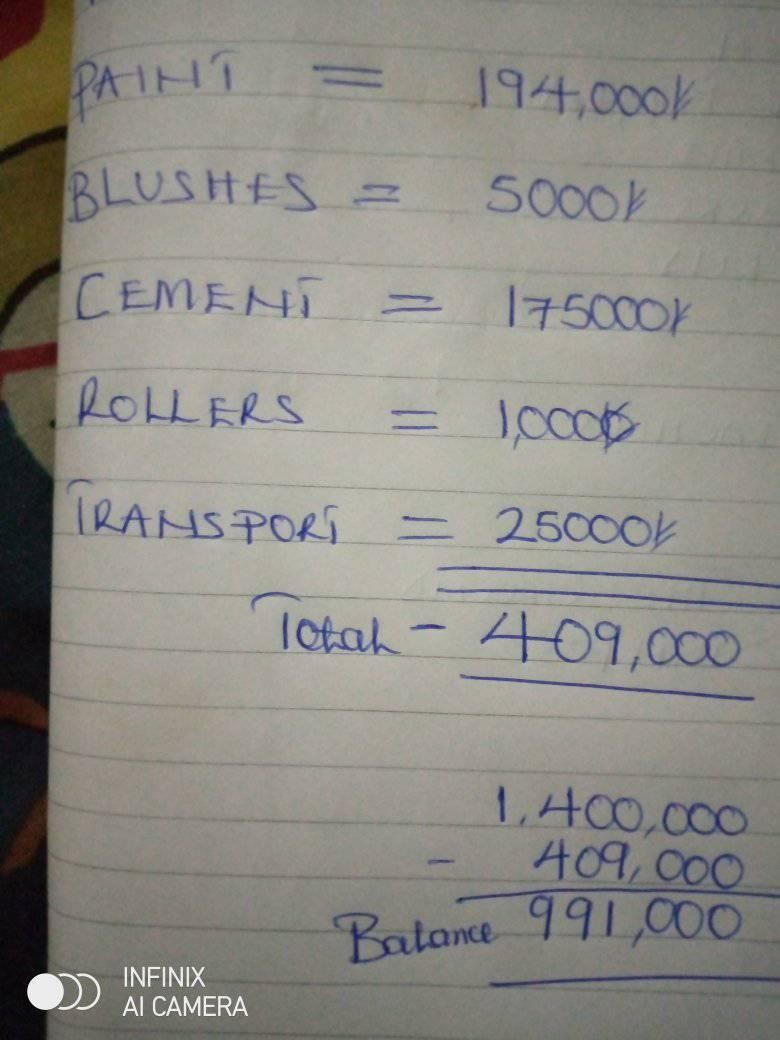 PAINT = 194,000K
BLUSHES = 5000K
CEMENT = 175000K
ROLLERS = 1,000
TRANSPORT = 25000K
Total - 409,000
1,400,000
- 409,000
Balance 991,000
INFINIX
AI CAMERA